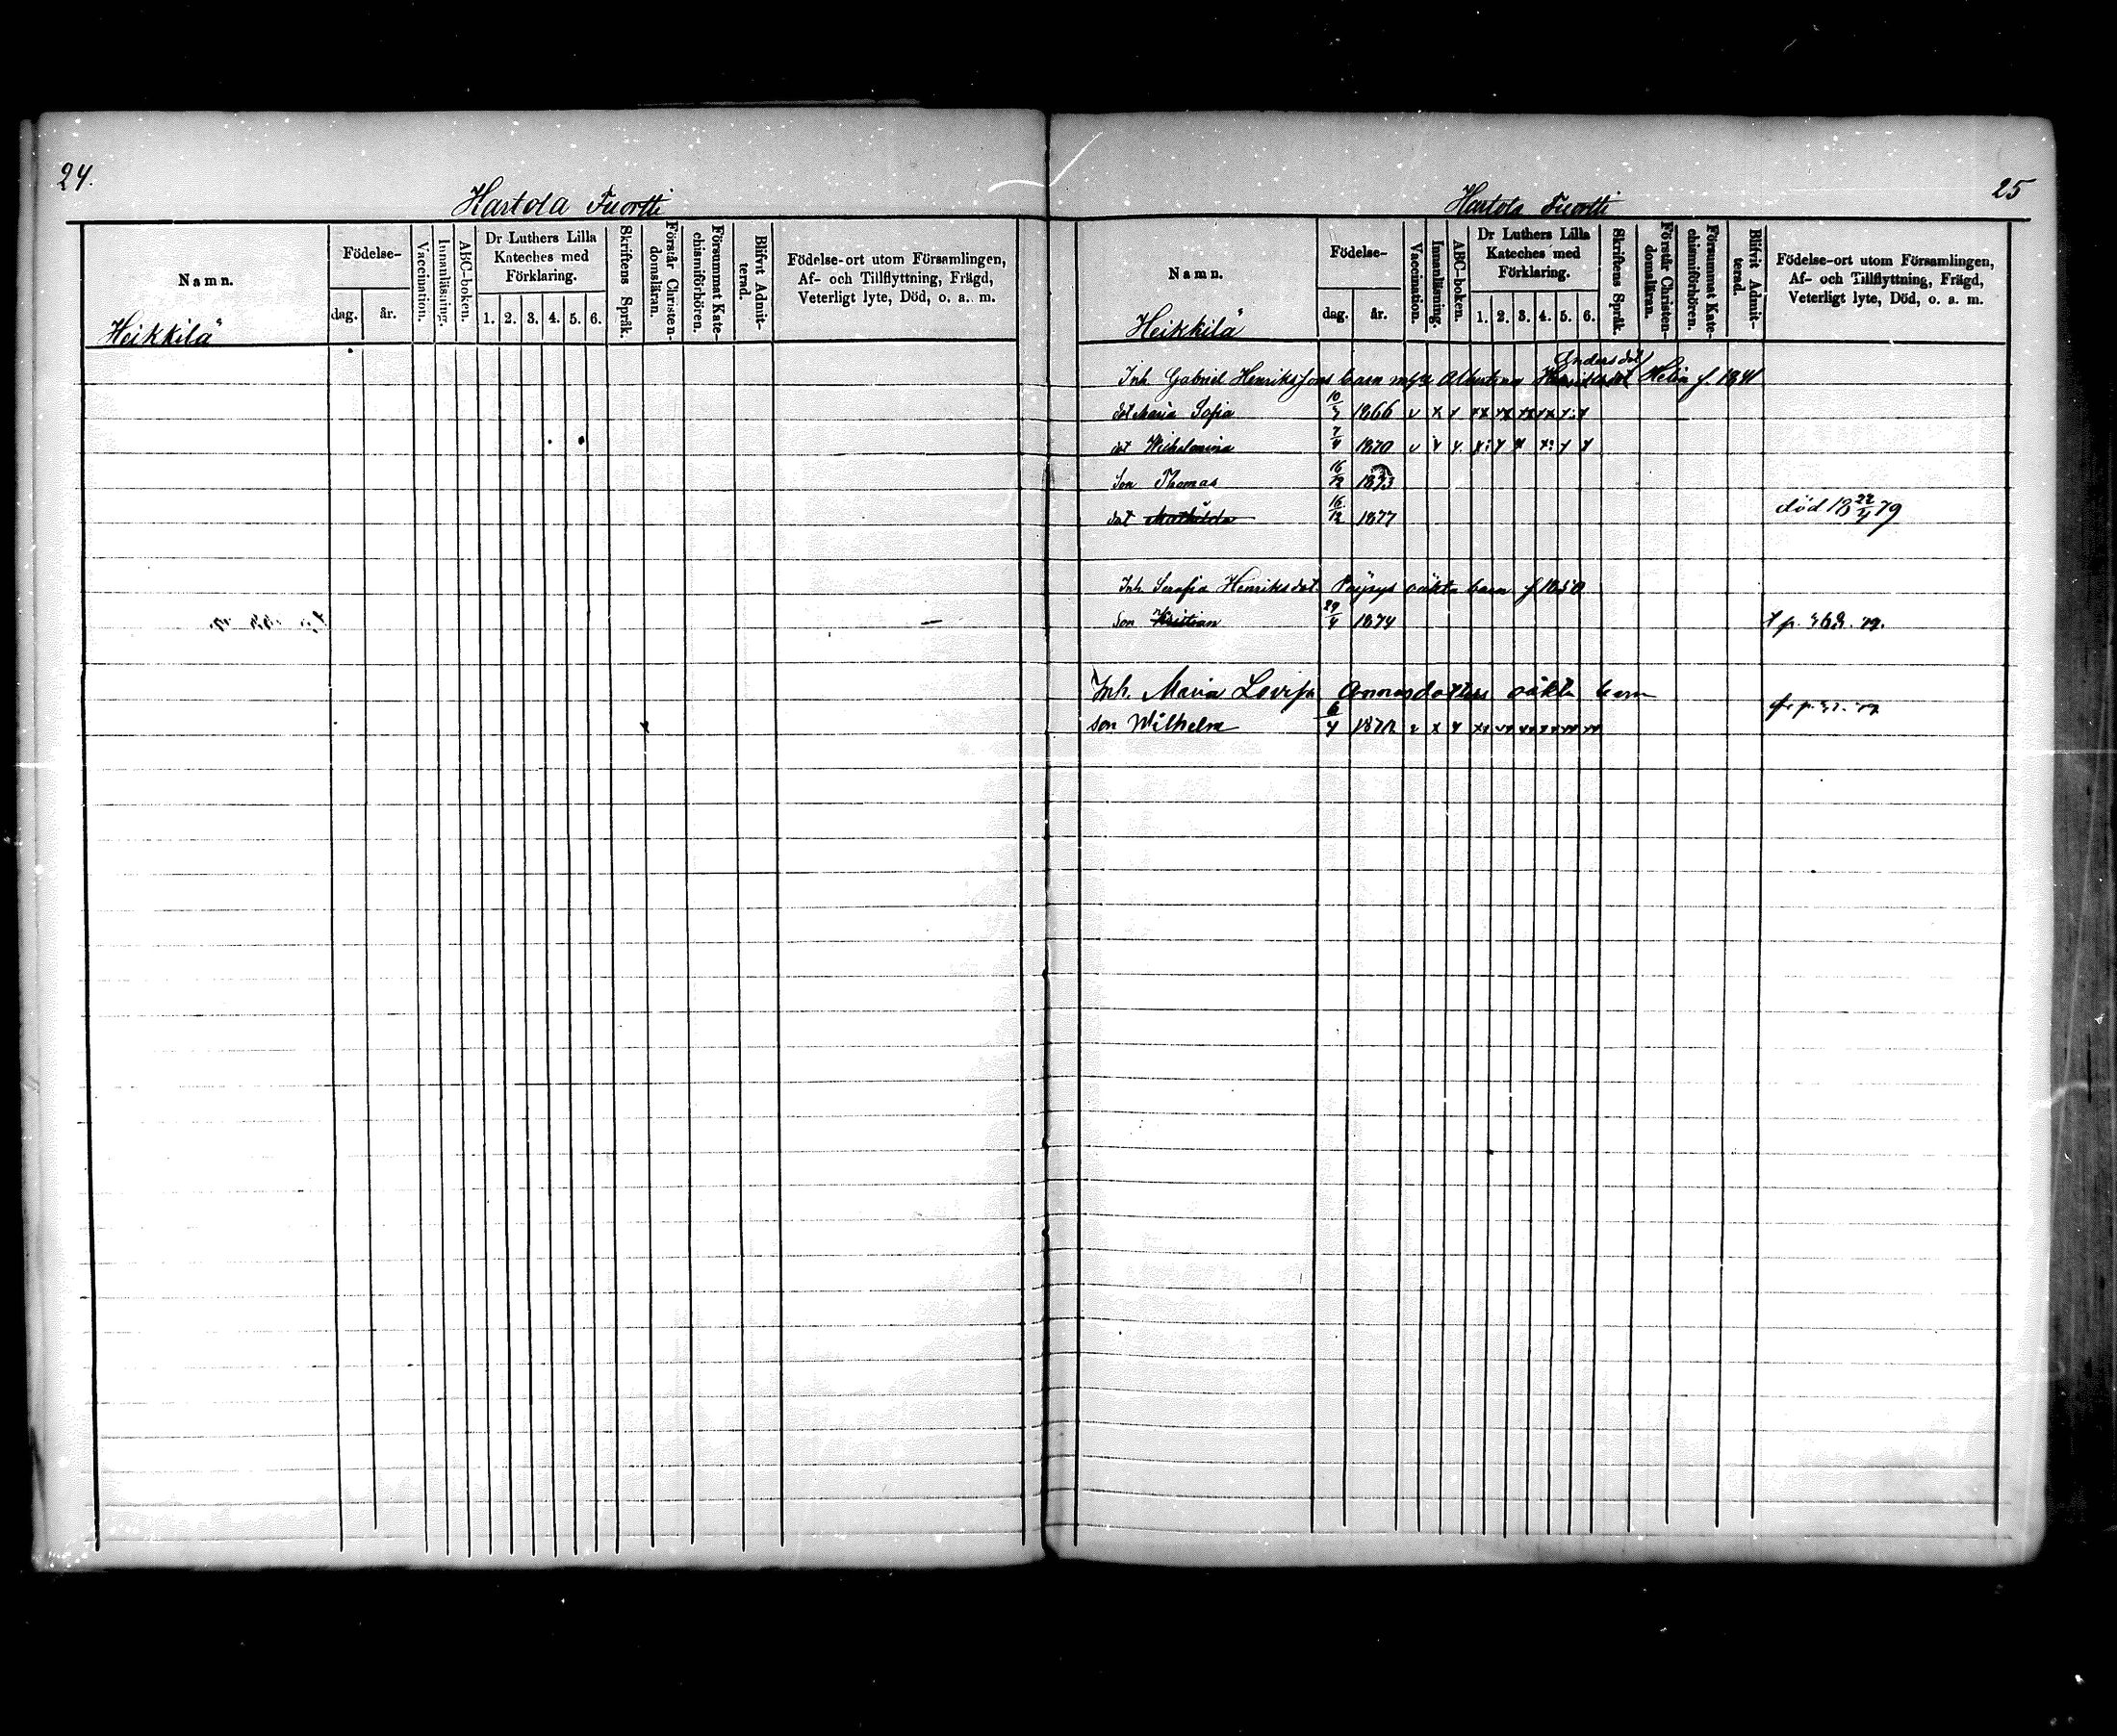 24.
Hartola Tuortti
Namn.
Födelse-
dag. år.
Vaccination.
Innanläsning.
ABC-boken.
Dr Luthers Lilla Kateches med Förklaring.
1. 2. 3. 4. 5. 6.
Skriftens Språk.
Förstår Christendomsläran.
Försummat Katechismiförhören.
Blifvit Admitterad.
Födelse-ort utom Församlingen,
Af- och Tillflyttning, Frägd,
Veterligt lyte, Död, o. a. m.
Heikkilä
25
Hartola Tuortti
Namn.
Födelse-
dag. år.
Vaccination.
Innanläsning.
ABC-boken.
Dr Luthers Lilla Kateches med Förklaring.
1. 2. 3. 4. 5. 6.
Skriftens Språk.
Förstår Christendomsläran.
Försummat Katechismiförhören.
Blifvit Admitterad.
Födelse-ort utom Församlingen,
Af- och Tillflyttning, Frägd,
Veterligt lyte, Död, o. a. m.
Heikkilä
Andersdot
Inh. Gabriel Henrikssons barn Albertina Henriksdot Helin f. 1841
dot Maria Sofia 1866
dot Wilhelmina 7/4 1870
Son Thomas 16/12 1873
dot Mathilda 16/12 1877 död 18 22/4 79
Inh. Serafia Henriksdot. oäkta barn f 1850
Son Kristian 29/4 1874
Inh. Maria Lovisa Annasdotters oäkta barn
son Wilhelm 6/4 1872